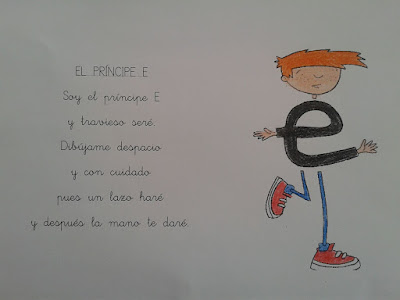 EL PRÍNCIPE E
Soy el príncipe E
y travieso seré.
Dibújame despacio
y con cuidado
pues un lazo haré
y después la mano te daré.
e